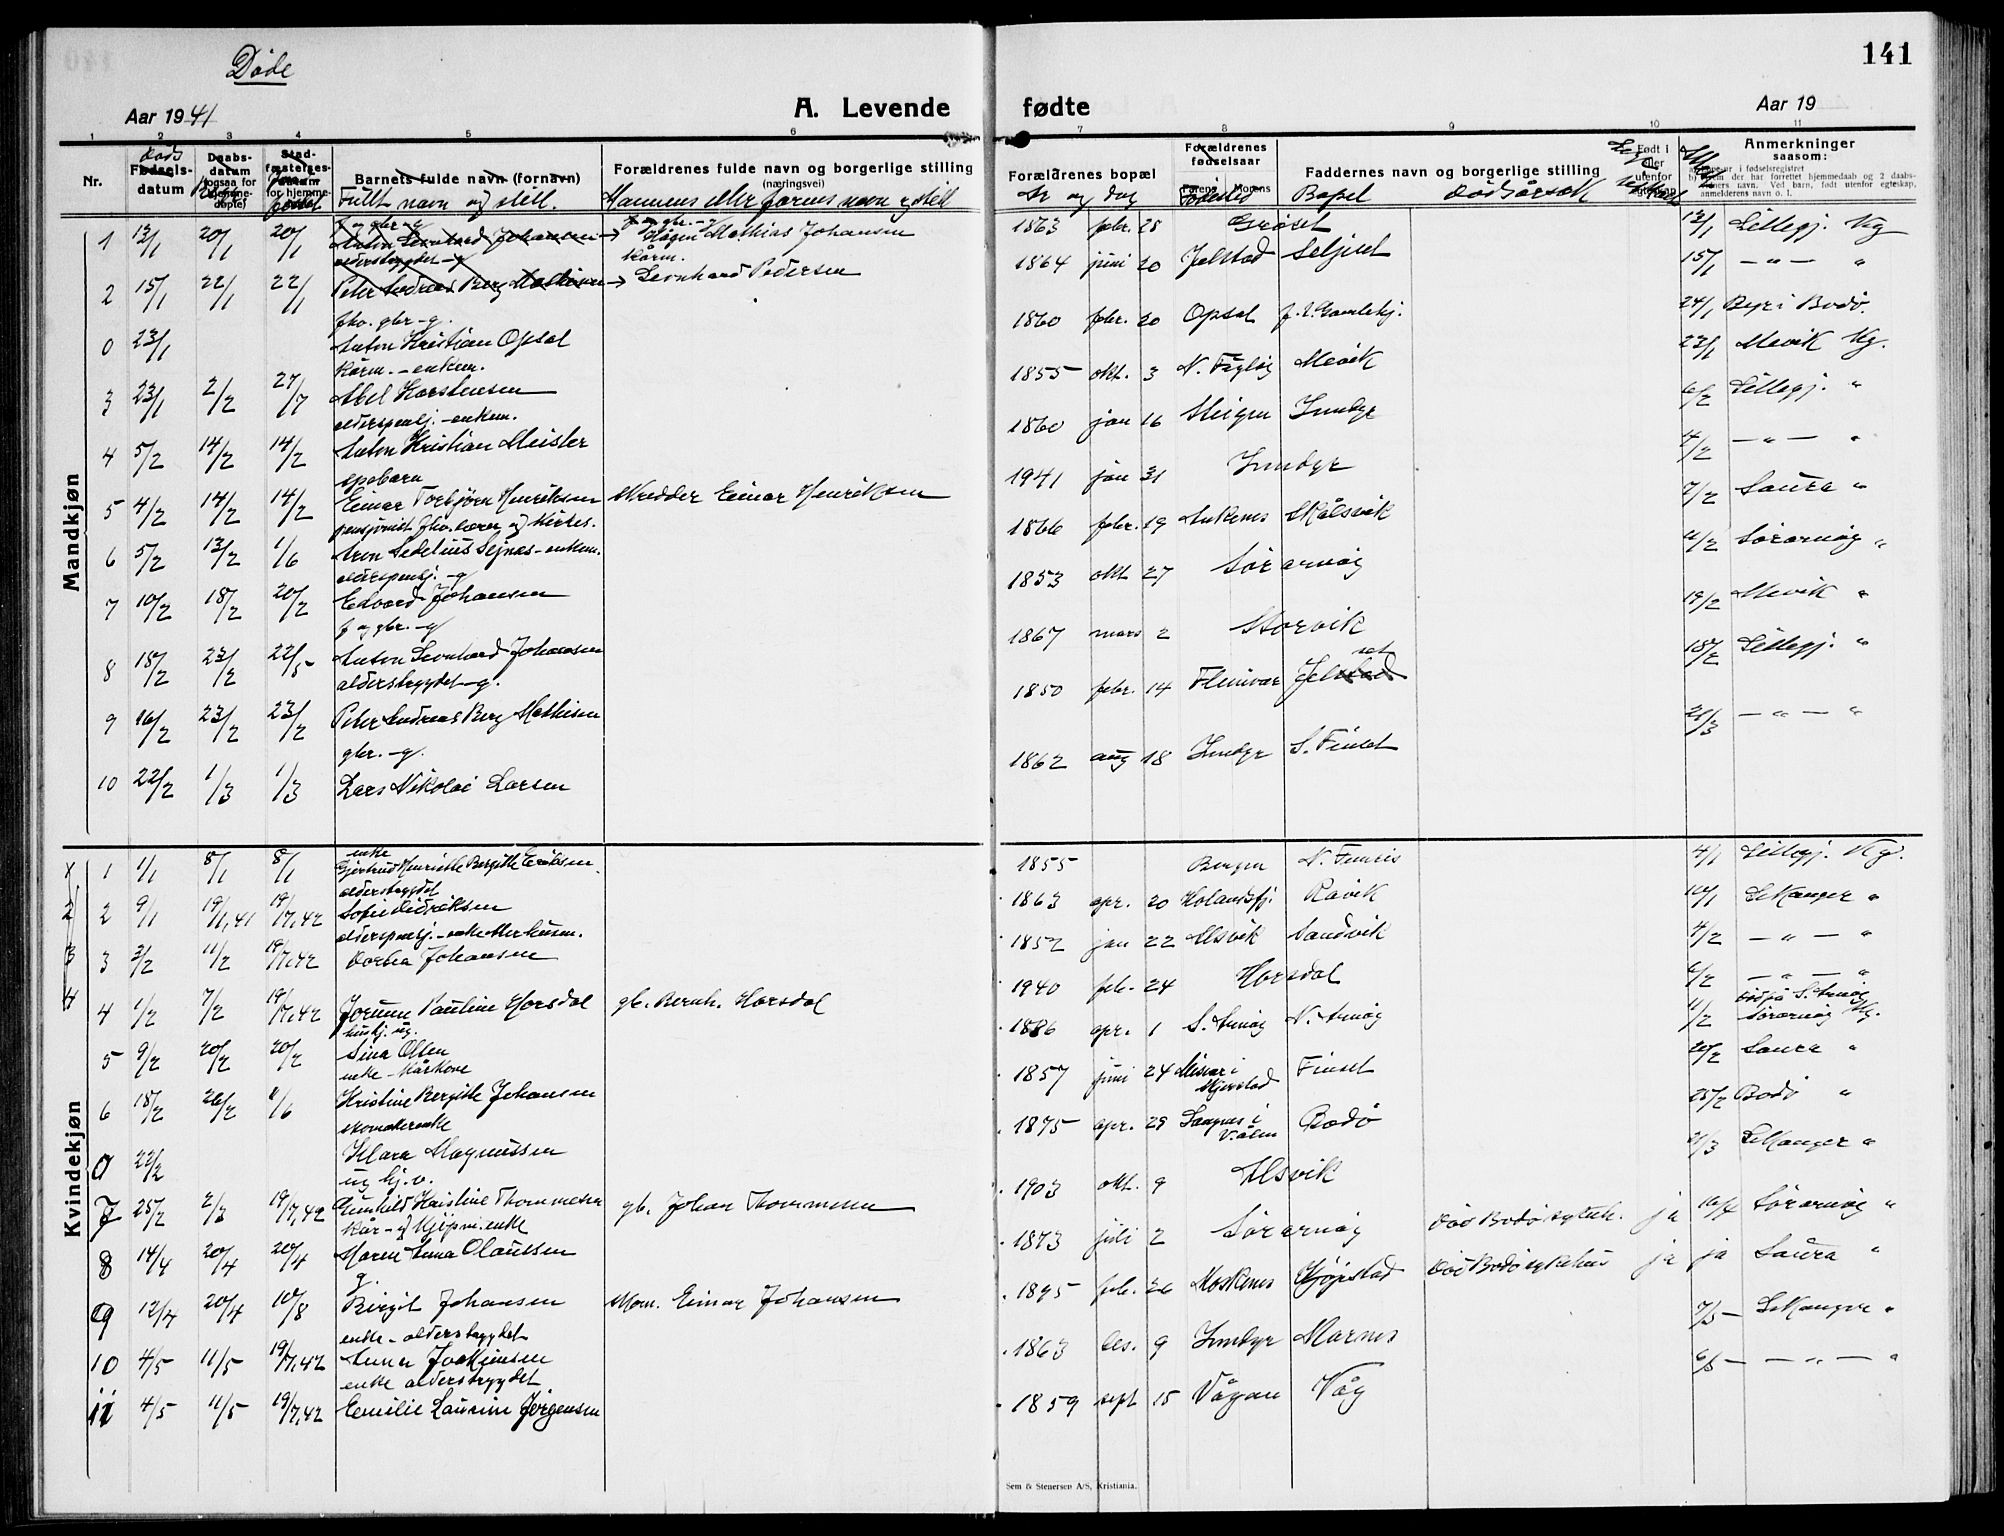 Døde
141
Aar 1941
A. Levende
fødte
Aar 19
1 2 3 4 5 6
7 8 9 10 11
Nr.
Døds
Fødselsdatum
Daabsdatum
Barnets fulde navn (fornavn)
Fullt navn og still.
Forældrenes fulde navn og borgerlige stilling
(næringsvei)
Mannens eller farens navn og still
Forældrenes bopæl
År og dag
Forældrenes fødselsaar
Farens Morens
Fødested
Faddernes navn og borgerlige stilling
Bopel
Dødsårsak
Født i eller utenfor
Anmerkninger
saasom:
Mandkjøn
f og gbr. - g
1 12/1 20/1 20/1 Anton Leonhard Johansen → Hagen Mathias Johansen 1863 febr. 28 Grøset 13/1 Lillegj. Kg
alderstrygdet - g kårm.
2 15/1 22/1 22/1 Peter Andreas Berg Mathisen → Leonhard Pedersen 1864 juni 20 Jelstad Selset 15/1 — " — "
fho. gbr - g.
0 23/1 Anton Kristian Opsal 1860 febr. 20 Opsal 24/1 Byr i Bodø.
kårm. - enkem.
3 23/1 2/2 27/7 Abel Karstensen 1855 okt. 3 N. Fugløy Mevik 23/1 Mevik Kg.
alderspensj. - enkem.
4 5/2 14/2 14/2 Anton Kristian Meisler 1860 jan 16 Steigen Inndyr 6/2 Lillegj. "
spebarn
5 4/2 14/2 14/2 Einar Torbjørn Henriksen Skredder Einar Henriksen 1941 jan 31 Inndyr 4/2 — " — "
pensjonist fho. lærer og kirkes.
6 5/2 13/2 1/6 Aron Sedelius Sejnæs - enkem. 1866 febr. 19 Skålsvik 7/2 Saura "
alderspensj. - g
7 10/2 18/2 20/2 Edvard Johansen 1853 okt 27 Sørarnøy 11/2 Sørarnøy "
f og gbr. - g
8 18/2 23/2 22/5 Anton Leonhard Johansen 1867 mars 2 Storvik 19/2 Mevik "
alderstrygdet - g.
9 16/2 23/2 23/2 Peter Andreas Berg Mathisen 1850 febr. 14 Fleinvær 18/2 Lillegj. "
gbr. - g.
10 22/2 1/3 1/3 Lars Nikolai Larsen 1862 aug 18 Inndyr S. Finset — " — "
Kvindekjøn
enke
1 1/1 8/1 8/1 Gjertrud Henriette Bergitte Eriksen 1855 Bergen 4/1 Lillegj. Kg.
alderstrygdet
2 9/1 19/1,41 19/7,42 Sofie Didriksen 1863 apr. 20 Holandsfj. Ravik 10/1 Lekanger "
3 2/2 11/2 19/7,42 Dorthea Johansen 1852 jan 22 Alsvik Sandvik 4/2 — " — "
4 1/2 7/2 19/7,42 Jorunn Pauline Horsdal gb. Bernh. Horsdal 1940 feb. 24 Horsdal 6/2 — " — "
hushj. ug.
5 9/2 20/2 20/2 Sina Olsen 1886 apr. 1 S. Arnøy N. Arnøy 11/2 Sørarnøy Kg.
enke - kårkone
6 18/2 26/2 Kristine Bergitte Johansen 1857 juni 24 Misvær i Skjerstad Finset 20/2 Saura "
skomakerenke
0 22/2 Klara Magnussen 1875 apr. 29 Bodø 25/2 Bodø "
ug hj. v.
7 25/2 2/3 19/7,42 Gunhild Kristine Thommesen gb. Johan Thommesen 1903 okt. 9 Alsvik 2/3 Lekanger "
8 14/4 20/4 20/4 Maren Anna Olaussen 1873 juli 2 Sørarnøy Død Bodø sykeh. ja Sørarnøy "
g.
9 12/4 20/4 10/8 Birgit Johansen Mom. Einar Johansen 1895 feb. 26 Moskenes Gjøpstad Død Bodø sykehus ja ja Saura "
enke - alderstrygdet
10 4/5 11/5 19/7,42 Anna Joakimsen 1863 des. 9 Inndyr Marnes 7/5 Lekanger "
enke alderstrygdet
11 4/5 11/5 19/7,42 Emilie Laurine Jørgensen 1859 sept 15 Vågan Våg 6/5 — " — "
Sem & Stenersen A/S, Kristiania.